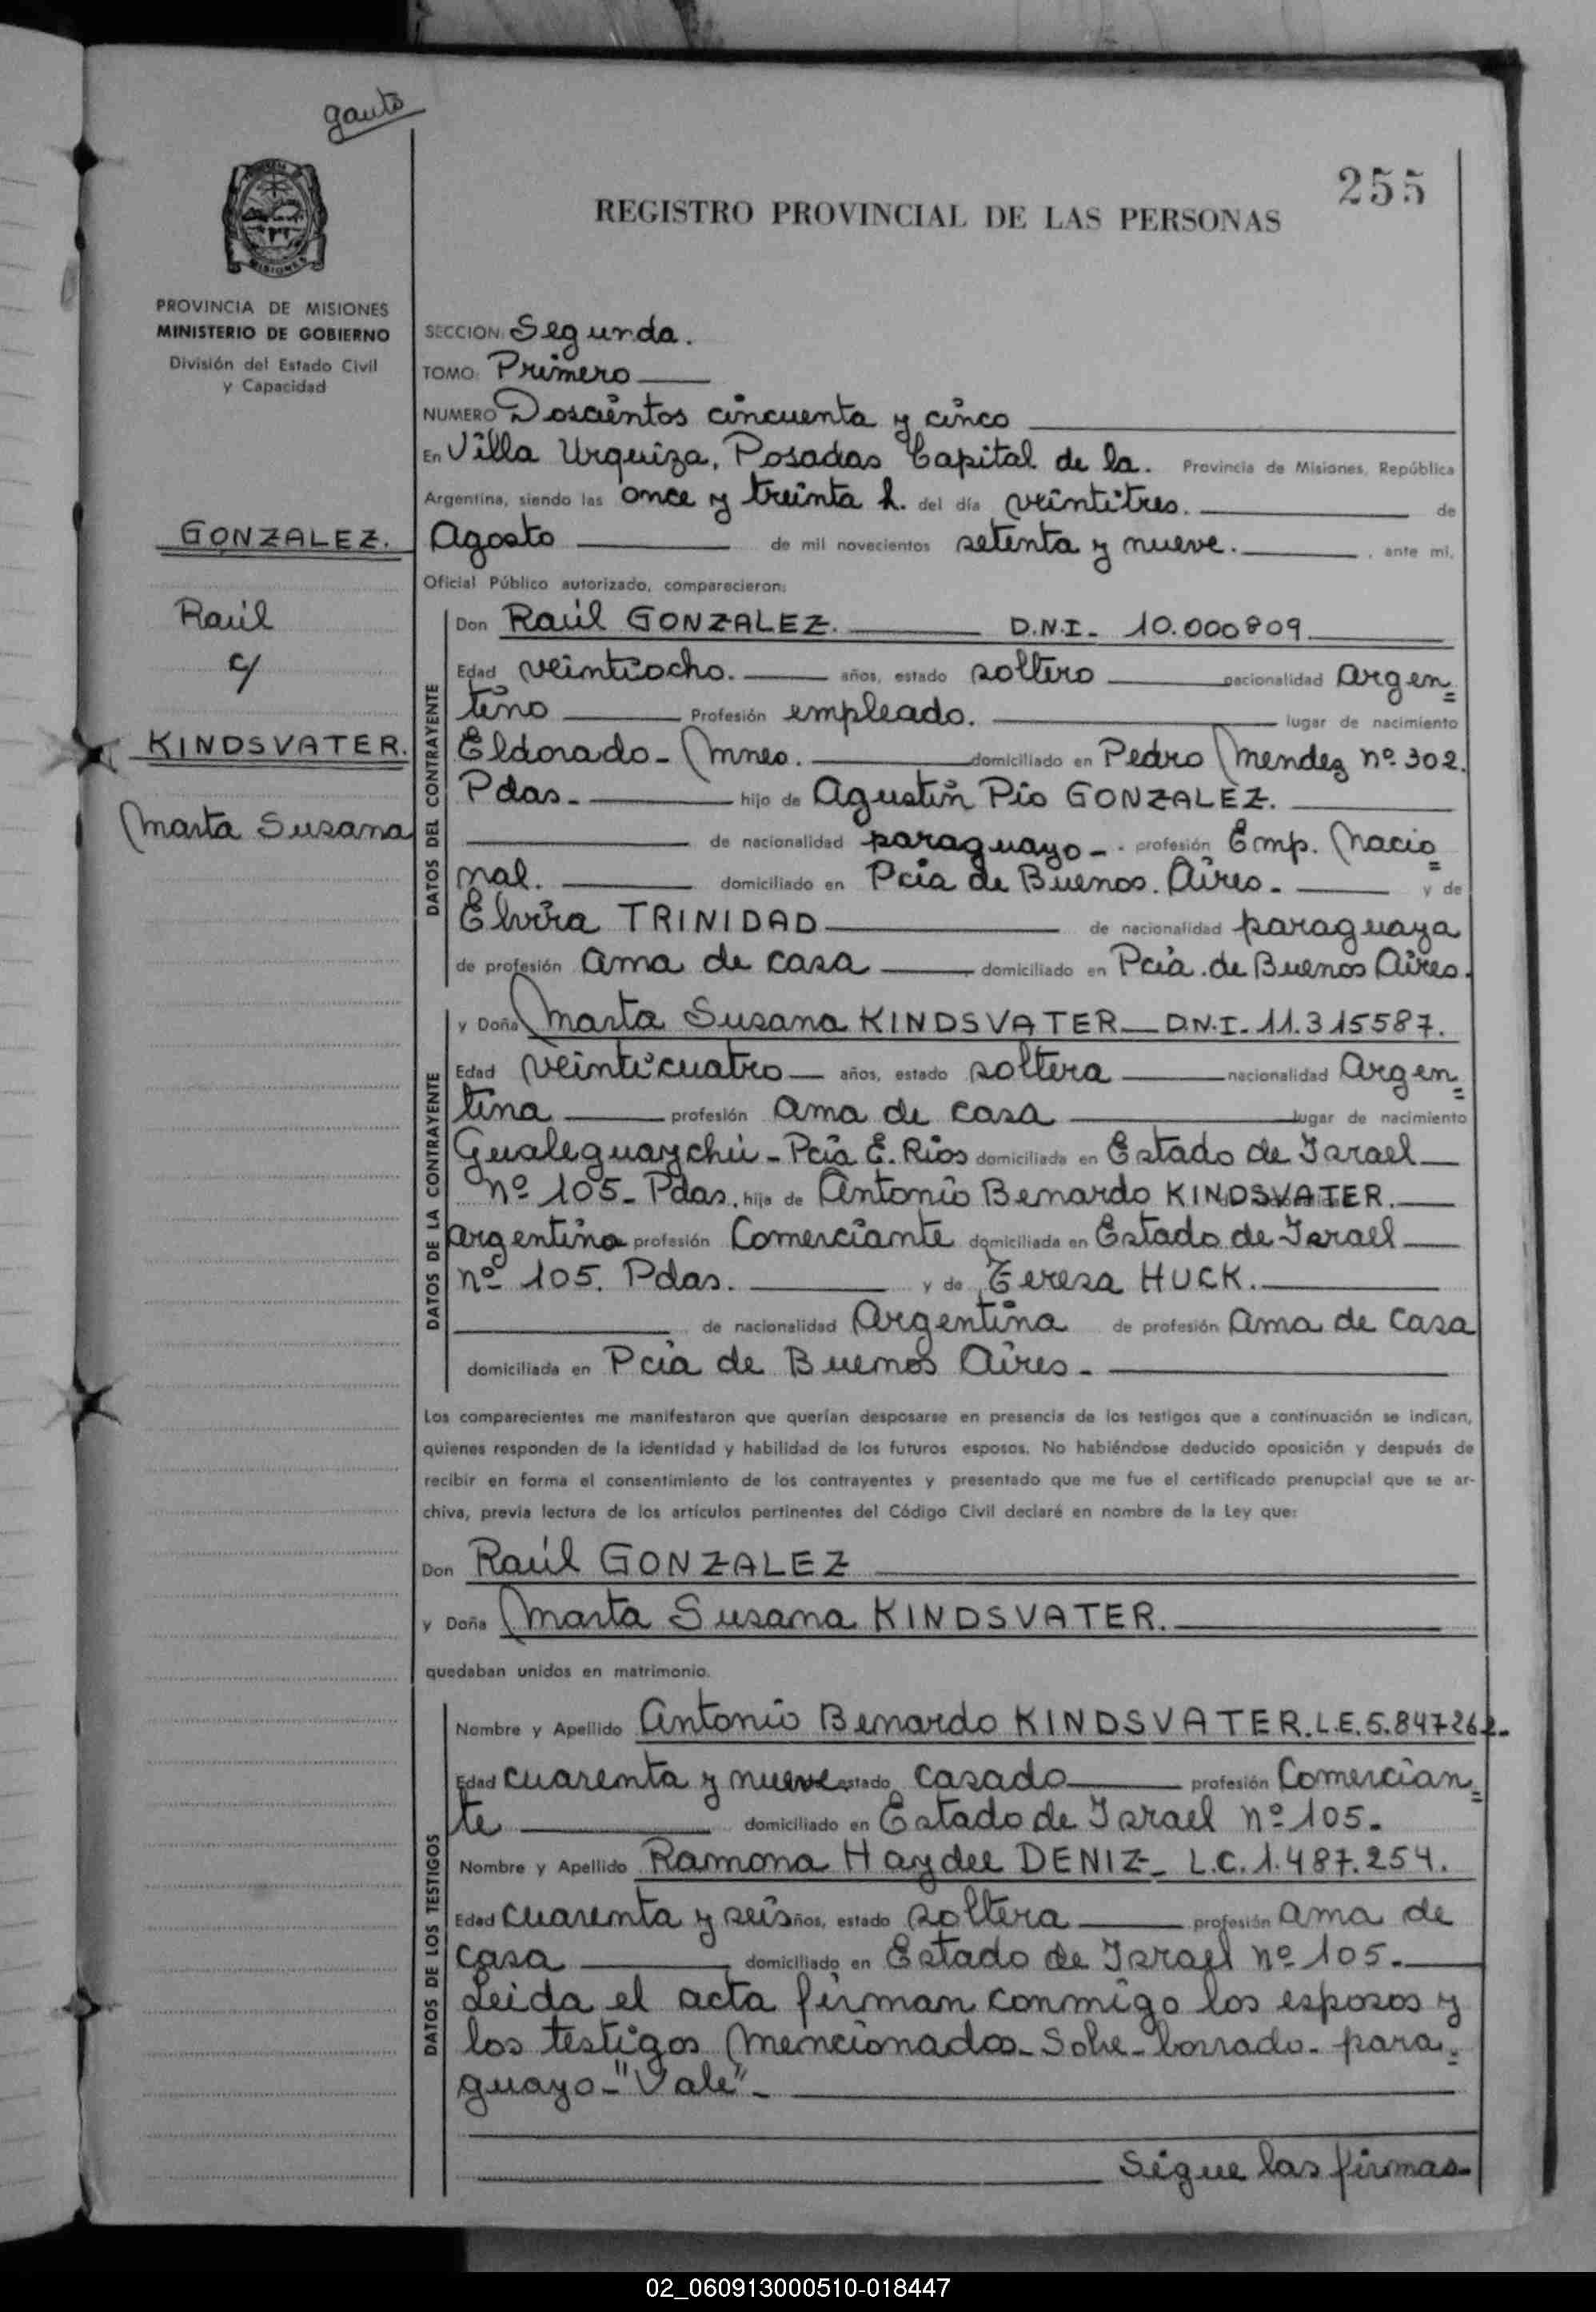 gauto
255
REGISTRO PROVINCIAL DE LAS PERSONAS
MISIONES
PROVINCIA DE MISIONES
MINISTERIO DE GOBIERNO
División del Estado Civil
y Capacidad
GONZALEZ.
Raúl
c/
KINDSVATER.
Marta Susana
SECCION: Segunda.
TOMO: Primero
NUMERO Doscientos cincuenta y cinco
En Villa Urquiza, Posadas Capital de la. Provincia de Misiones, República
Argentina, siendo las once y treinta h. del día veintitres. de
Agosto de mil novecientos setenta y nueve. , ante mí,
Oficial Público autorizado, comparecieron:
DATOS DEL CONTRAYENTE
Don Raúl GONZALEZ. D.N.I- 10.000809
Edad veintiocho. años, estado soltero nacionalidad Argen=
tino Profesión empleado. lugar de nacimiento
Eldorado- Mnes. domiciliado en Pedro Mendez nº 302.
Pdas- hijo de Agustín Pío GONZALEZ.
de nacionalidad paraguayo- profesión Emp. Nacio=
nal. domiciliado en Pcia de Buenos. Aires- y de
Elvira TRINIDAD de nacionalidad paraguaya
de profesión ama de casa domiciliado en Pcia. de Buenos Aires.
DATOS DE LA CONTRAYENTE
y Doña Marta Susana KINDSVATER D.N.I- 11.315587.
Edad veinticuatro años, estado soltera nacionalidad Argen=
tina profesión ama de casa lugar de nacimiento
Gualeguaychú- Pcia E. Rios domiciliada en Estado de Israel
nº 105- Pdas. hija de Antonio Benardo KINDSVATER.
argentino profesión Comerciante domiciliada en Estado de Israel
nº 105. Pdas. y de Teresa HUCK.
de nacionalidad Argentina de profesión ama de casa
domiciliada en Pcia de Buenos Aires-
Los comparecientes me manifestaron que querían desposarse en presencia de los testigos que a continuación se indican,
quienes responden de la identidad y habilidad de los futuros esposos. No habiéndose deducido oposición y después de
recibir en forma el consentimiento de los contrayentes y presentado que me fue el certificado prenupcial que se ar-
chiva, previa lectura de los artículos pertinentes del Código Civil declaré en nombre de la Ley que:
Don Raúl GONZALEZ
y Doña Marta Susana KINDSVATER.
quedaban unidos en matrimonio.
DATOS DE LOS TESTIGOS
Nombre y Apellido Antonio Benardo KINDSVATER. L.E. 5.847262-
Edad cuarenta y nueve estado casado profesión Comercian=
te domiciliado en Estado de Israel nº 105-
Nombre y Apellido Ramona Haydee DENIZ- L.C. 1.487.254.
Edad cuarenta y seis años, estado soltera profesión ama de
casa domiciliado en Estado de Israel nº 105-
Leida el acta firman conmigo los esposos y
los testigos mencionados- Sobre-borrado- para=
guayo-"Vale"-
Sigue las firmas-
02_060913000510-018447